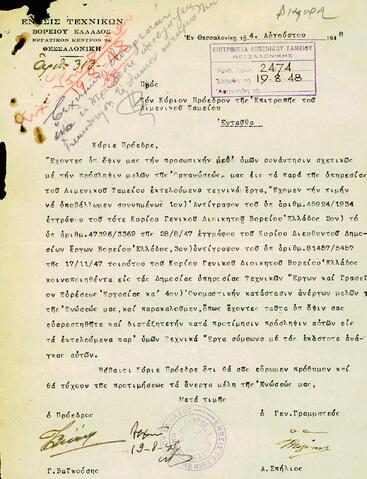 Διάφορα
ΕΝΩΣΙΣ ΤΕΧΝΙΚΩΝ
ΒΟΡΕΙΟΥ ΕΛΛΑΔΟΣ
ΕΡΓΑΤΙΚΟΝ ΚΕΝΤΡΟΝ 24
ΘΕΣΣΑΛΟΝΙΚΗ
Ἐν Θεσσαλονίκῃ τῇ 4. Αὐγούστου 1948
Ἀριθ. 318
ΕΠΙΤΡΟΠΕΙΑ ΛΙΜΕΝΙΚΟΥ ΤΑΜΕΙΟΥ
ΘΕΣΣΑΛΟΝΙΚΗΣ
Ἀριθ. Πρωτ. 2474
19-8-48
Πρὸς
Τὸν Κύριον Πρόεδρον τῆς Ἐπιτροπῆς τοῦ
Λιμενικοῦ Ταμείου
Ἐνταῦθα
Κύριε Πρόεδρε,
Ἔχοντες ὑπ ὄψιν μας τὴν προσωπικὴν μεθ' ὑμῶν συνάντησιν σχετικῶς
μὲ τὴν πρόσληψιν μελῶν τῆς Ὀργανώσεώς μας εἰς τὰ παρὰ τῆς ὑπηρεσίας
τοῦ Λιμενικοῦ Ταμείου ἐκτελούμενα τεχνικὰ ἔργα, Ἔχομεν τὴν τιμὴν
νὰ ὑποβάλλωμεν συνημμένως 1ον) Ἀντίγραφον τοῦ ὑπ ἀριθμ. 45924/1934
ἐγγράφου τοῦ τότε Κυρίου Γενικοῦ Διοικητοῦ Βορείου Ἑλλάδος 2ον) τὸ
ὑπ ἀριθμ. 47396/3369 τῆς 28/8/47 ἐγγράφου τοῦ Κυρίου Διευθυντοῦ Δημοσίων
ἔργων Βορείου Ἑλλάδος, 3ον) ἀντίγραφον τοῦ ὑπ ἀριθμ. 81457/5457
τῆς 17/11/47 τοιούτου τοῦ Κυρίου Γενικοῦ Διοικητοῦ Βορείου Ἑλλάδος
κοινοποιηθέντα εἰς τὰς Δημοσίας ὑπηρεσίας Τεχνικῶν Ἔργων καὶ Γραφεῖον
Εὑρέσεως Ἐργασίας κα' 4ον) Ὀνομαστικὴν κατάστασιν ἀνέργων μελῶν
τῆς Ἑνώσεώς μας, καὶ παρακαλοῦμεν, ὅπως ἔχοντες ταῦτα ὑπ ὄψιν σας
εὐαρεστηθῆτε καὶ διατάξητε τὴν κατὰ προτίμησιν πρόσληψιν αὐτῶν εἰς
τὰ ἐκτελούμενα παρ' ὑμῶν Τεχνικὰ Ἔργα σύμφωνα μὲ τὰς ἑκάστοτε ἀνάγκας
αὐτῶν.
Βέβαιοι Κύριε Πρόεδρε ὅτι θὰ σᾶς εὕρωμεν πρόθυμον καὶ
θὰ τύχουν τῆς προτιμήσεως τὰ ἄνεργα μέλη τῆς Ἑνώσεώς μας,
Μετὰ τιμῆς
ὁ Πρόεδρος
ὁ Γεν. Γραμματεὺς
19-8-48
Γ. Βαϊκούσης
Α. Σπήλιος